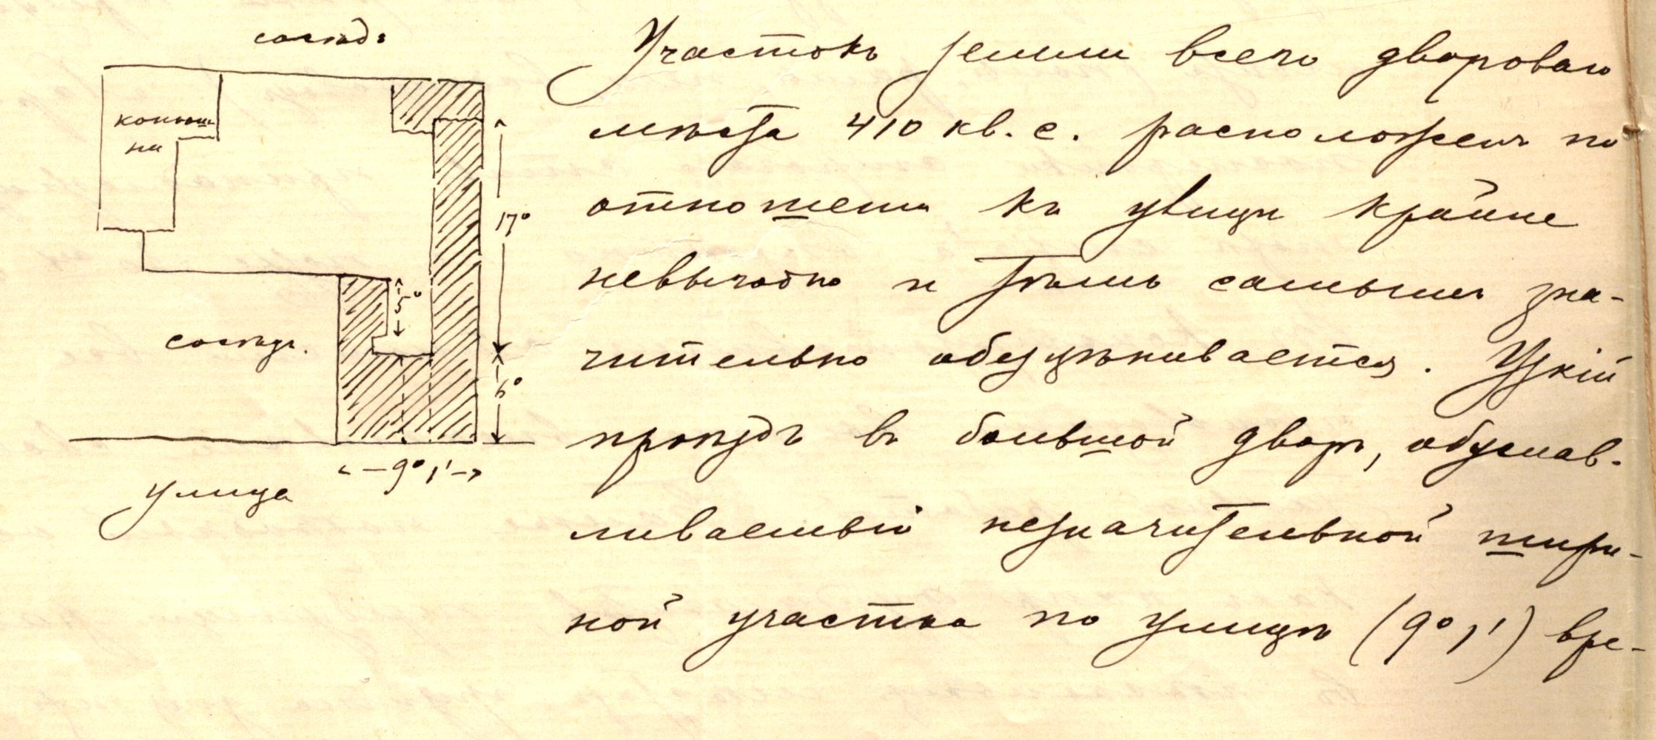 сосѣдъ
конюш
ня
17°
5°
сосѣдъ.
6°
9°,1'
улица
Участокъ земли всего двороваго
мѣста 410 кв. с. расположенъ по
отношенію къ улицѣ крайне
невыгодно и тѣмъ самымъ зна-
чительно обезцѣнивается. Узкій
проѣздъ въ большой дворъ, обуслав-
ливаемый незначительной шири-
ной участка по улицѣ (9°,1') вре-